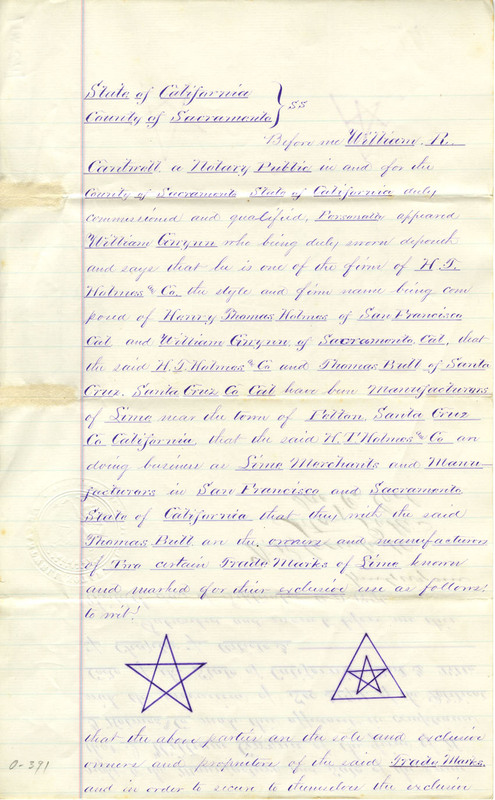 State of California
County of Sacramento } ss
Before me William R.
Cantwell a Notary Public in and for the
County of Sacramento State of California duly
commissioned and qualified, Personally appeared
William Gwynn who being duly sworn deposeth
and says that he is one of the firm of H. T.
Holmes & Co. the style and firm name being com
posed of Henry Thomas Holmes of San Francisco
Cal and William Gwynn of Sacramento Cal, that
the said H. T. Holmes & Co and Thomas Bull of Santa
Cruz. Santa Cruz Co Cal have been Manufacturers
of Lime near the town of Felton Santa Cruz
Co California, that the said H. T. Holmes & Co are
doing business as Lime Merchants and Manu-
facturers in San Francisco and Sacramento
State of California that they with the said
Thomas Bull are the owners and manufacturers
of Two certain Trade Marks of Lime known
and marked for their exclusive use as follows:
to wit!
that the above parties are the sole and exclusive
owners and proprietors of the said Trade Marks.
and in order to secure to themselves the exclusive
0-391